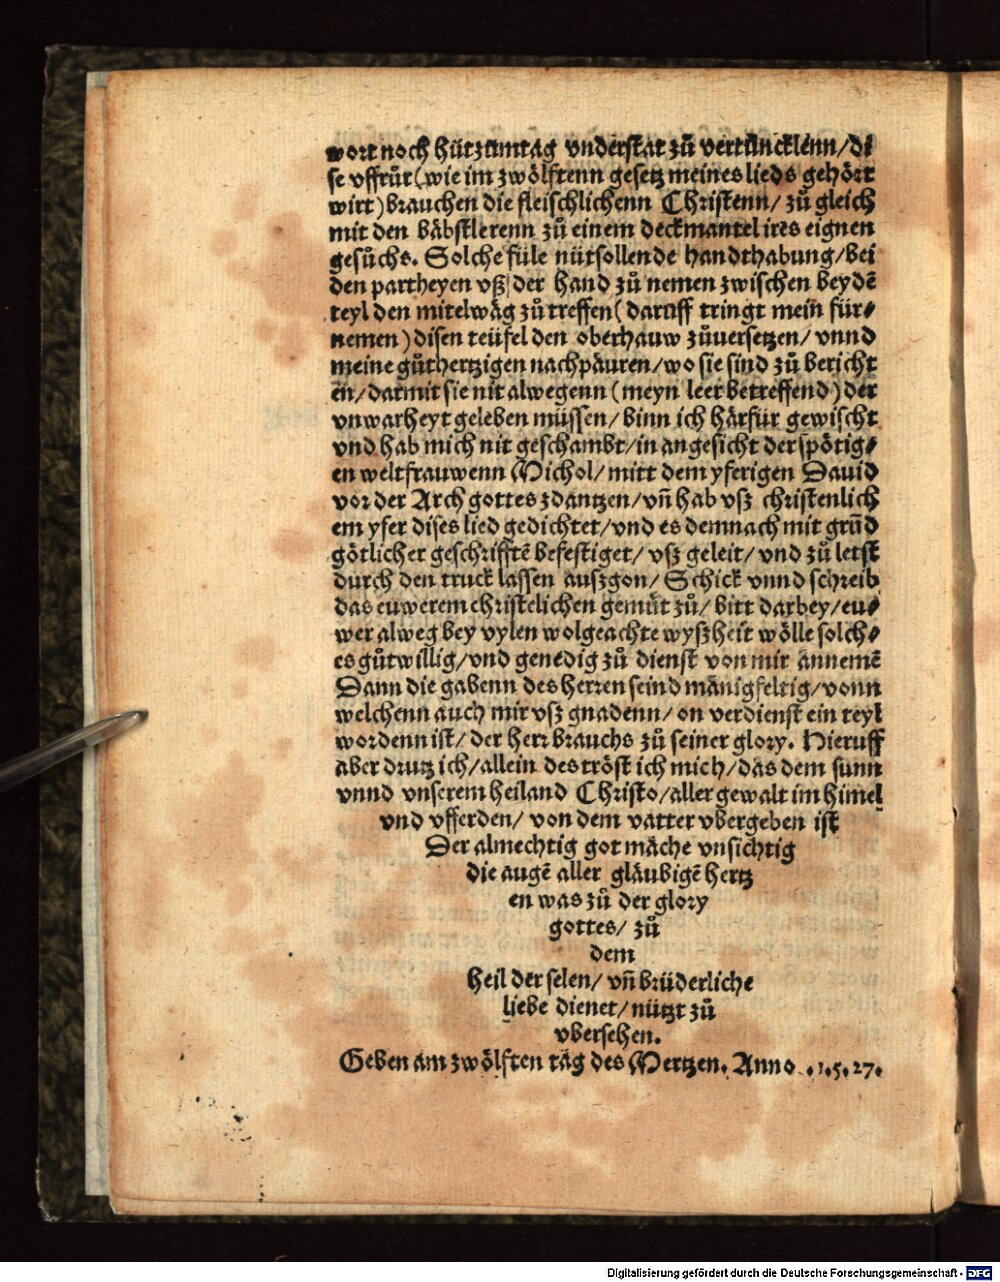 wort noch hützůmtag vnderstat zů vertůncklenn/di
se vffrůr (wie im zwölftenn gesetz meines lieds gehört
wirt) brauchen die fleischlichenn Christenn/ zů gleich
mit den bäbstlerenn zů einem deckmantel ires eignen
gesůchs. Solche füle nütsollende handthabung/bei
den partheyen vß der hand zů nemen zwischen beydē
teyl den mitelwäg zů treffen (darůff tringt mein für⸗
nemen) disen teüfel den oberhauw zůuersetzen/ vnnd
meine gůthertzigen nachpäuren/wo sie sind zů bericht
en/darmit sie nit alwegenn (meyn leer betreffend) der
vnwarheyt geleben müssen/ binn ich härfür gewischt
vnd hab mich nit geschambt/in angesicht der spötig⸗
en weltfrauwenn Michol/ mitt dem yferigen Dauid
vor der Arch gottes zdantzen/vn̄ hab vsz christenlich
em yfer dises lied gedichtet/vnd es demnach mit grūd
götlicher geschrifftē befestiget/ vsz geleit/ vnd zů letst
durch den truck lassen auszgon/ Schick vnnd schreib
das euwerem christelichen gemüt zů/ bitt darbey/eu⸗
wer alweg bey vylen wolgeachte wyszheit wölle solch⸗
es gůtwillig/vnd genedig zů dienst von mir annemē
Dann die gabenn des herren seind mänigfeltig/vonn
welchenn auch mir vsz gnadenn/ on verdienst ein teyl
wordenn ist/ der herr brauchs zů seiner glory. Hieruff
aber drutz ich/allein des tröst ich mich/das dem sunn
vnnd vnserem heiland Christo/aller gewalt im himel
vnd vfferden/ von dem vatter vbergeben ist
Der almechtig got mache vnsichtig
die augē aller gläubigē hertz
en was zů der glory
gottes/ zů
dem
heil der selen/ vn̄ brüderliche
liebe dienet/nützt zů
vbersehen.
Geben am zwölften tag des Mertzen. Anno .1.5.27.
Digitalisierung gefördert durch die Deutsche Forschungsgemeinschaft - DFG